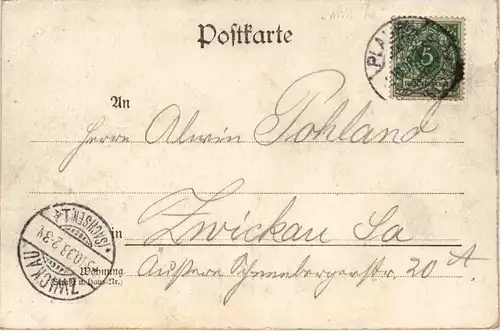 Postkarte
PLA
5
An
Herrn Alwin Pohland
in Zwickau Sa
Wohnung
(Straße u. Haus-Nr.)
Äussere Schneebergerstr. 20 A.
ZWICKAU
*(SACHSEN) 1.*
10.93 2-3N